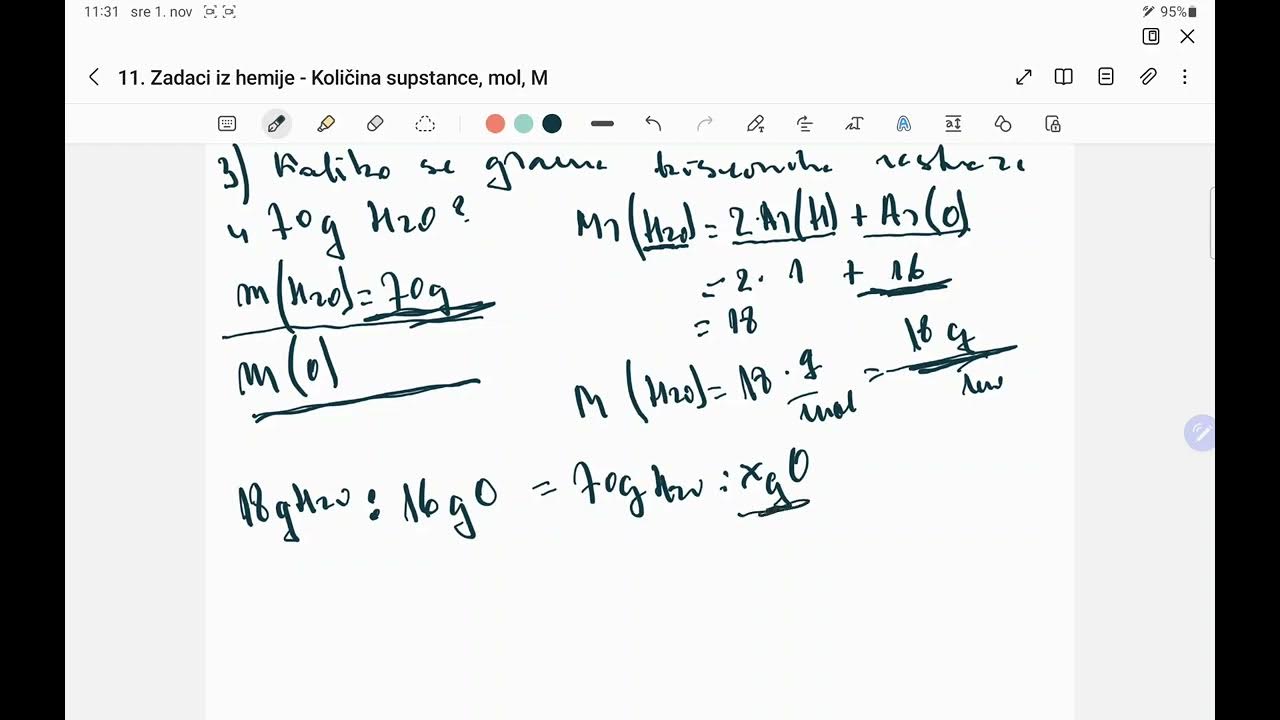 11:31 sre 1. nov 95%
11. Zadaci iz hemije - Količina supstance, mol, M
3) Koliko se grama kiseonika nalazi
u 70g H2O?
m(H2O)=70g
m(O)
Mr(H2O)=2·Ar(H)+Ar(O)
=2·1+16
=18
M(H2O)=18·g/mol=18g/mol
18gH2O:16gO=70gH2O:xgO